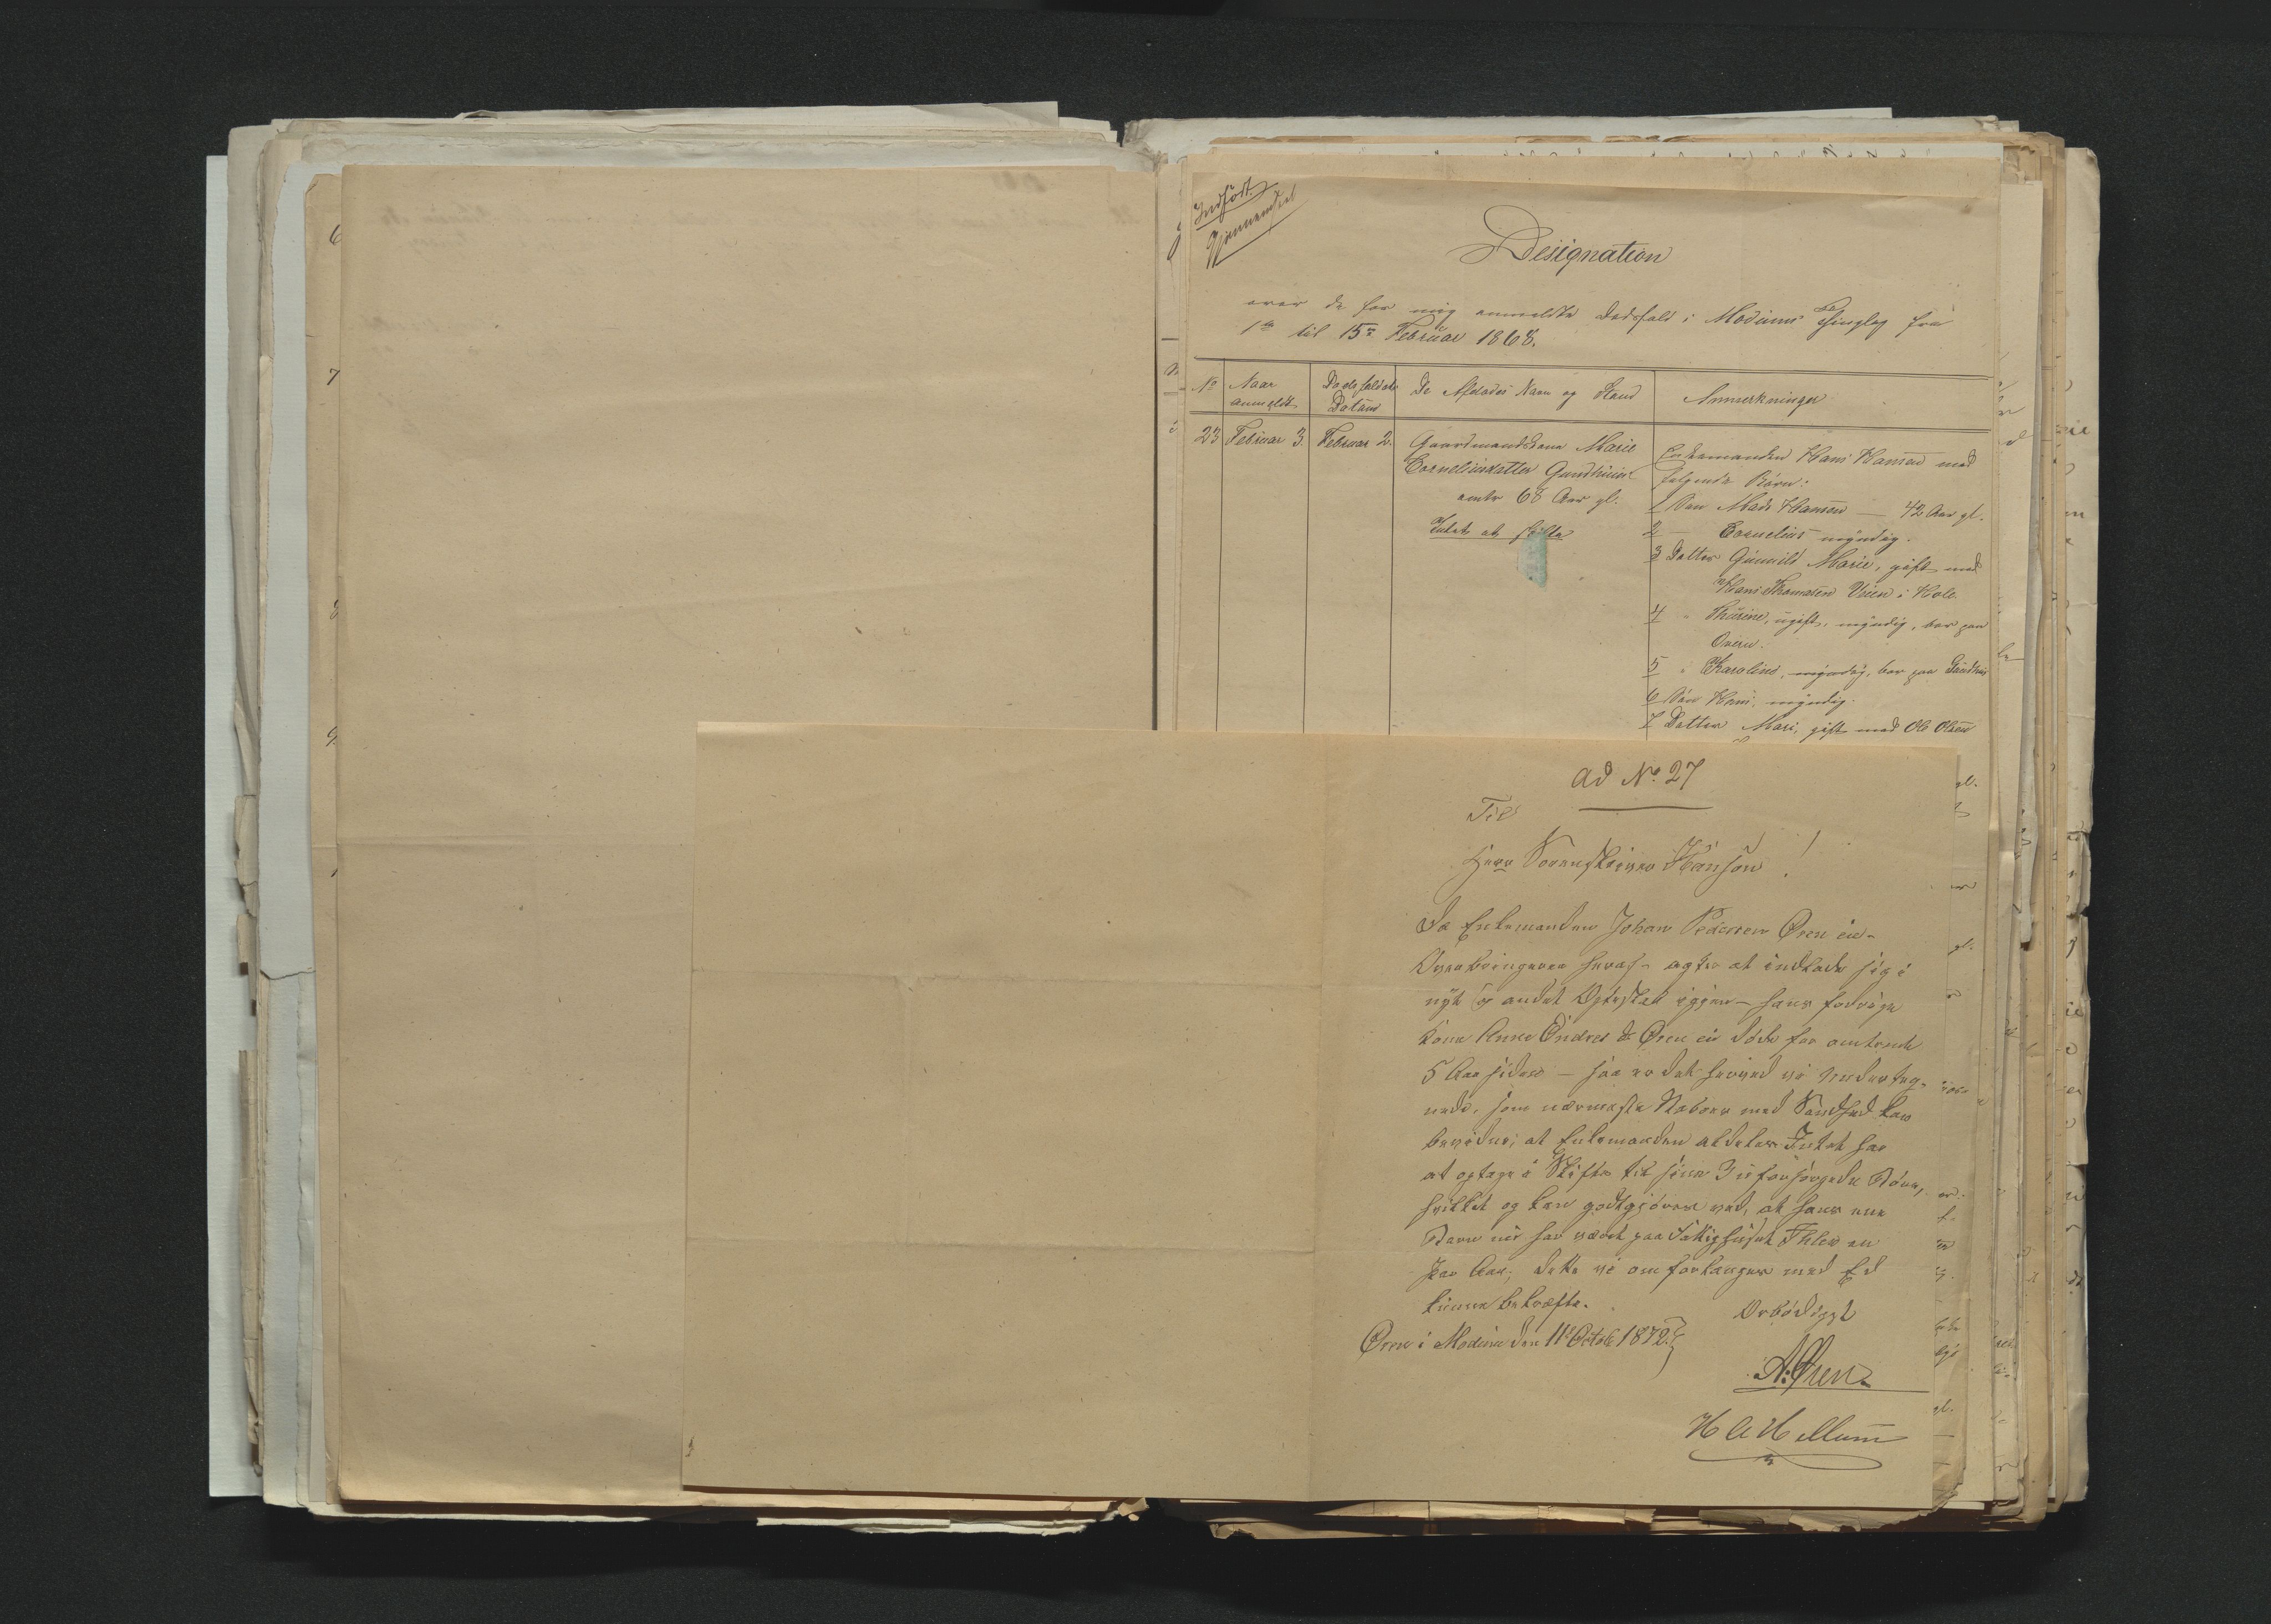 Indført
Gjennemseet
Designation
over de for mig anmeldte Dødsfald i Modums Thinglag fra
1de til 15de Februar 1868.
No
Naar anmeldt
Dødsfaldets Datum
De Afdødes Navn og Stand
Anmerkninger
23
Februar 3
Februar 2.
Gaardmandskone Marie
Corneliusdatter Gundhuus
omtr 68 Aar gl.
Intet at skifte
Enkemanden Hans Hansen med
følgende Børn:
1 Søn Mads Hansen — 42 Aar gl.
2 — Cornelius myndig.
3 Datter Gunnild Marie, gift med
Hans Thomasen Viien i Hole
4 " Thurine, ugift, myndig, bor paa
Øveren.
5 " Karoline, myndig, bor paa Gundhus
6 Søn Hans, myndig.
7 Datter Mari, gift med Ole Olsen
Ad No. 27
Til
Herr Sorenskriver Hansson!
Da Enkemanden Johan Pedersen Øren eie-
Overbringeren heraf - agter at indlade sig i
nyt og andet Ægteskab igjen - hans forrige
Kone Anne Endresdr Øren er døde for omtrendt
5 Aar siden - saa er det herved vi underteg-
nede, som nærmeste Naboer med Sandhed kan
bevidne, at Enkemanden aldeles Intet har
at optage i Skifte til sine 3 uforsørgede Børn,
hvilket og kan godtgjøres ved, at hans ene
Barn nu har været paa Fattighuset Ihlen en
par Aar; dette vi om forlanges med Ed
kunne bekræfte.
Ærbødigst
Øren i Modum den 11te Octob 1872.
A: Øren
H A Hellum